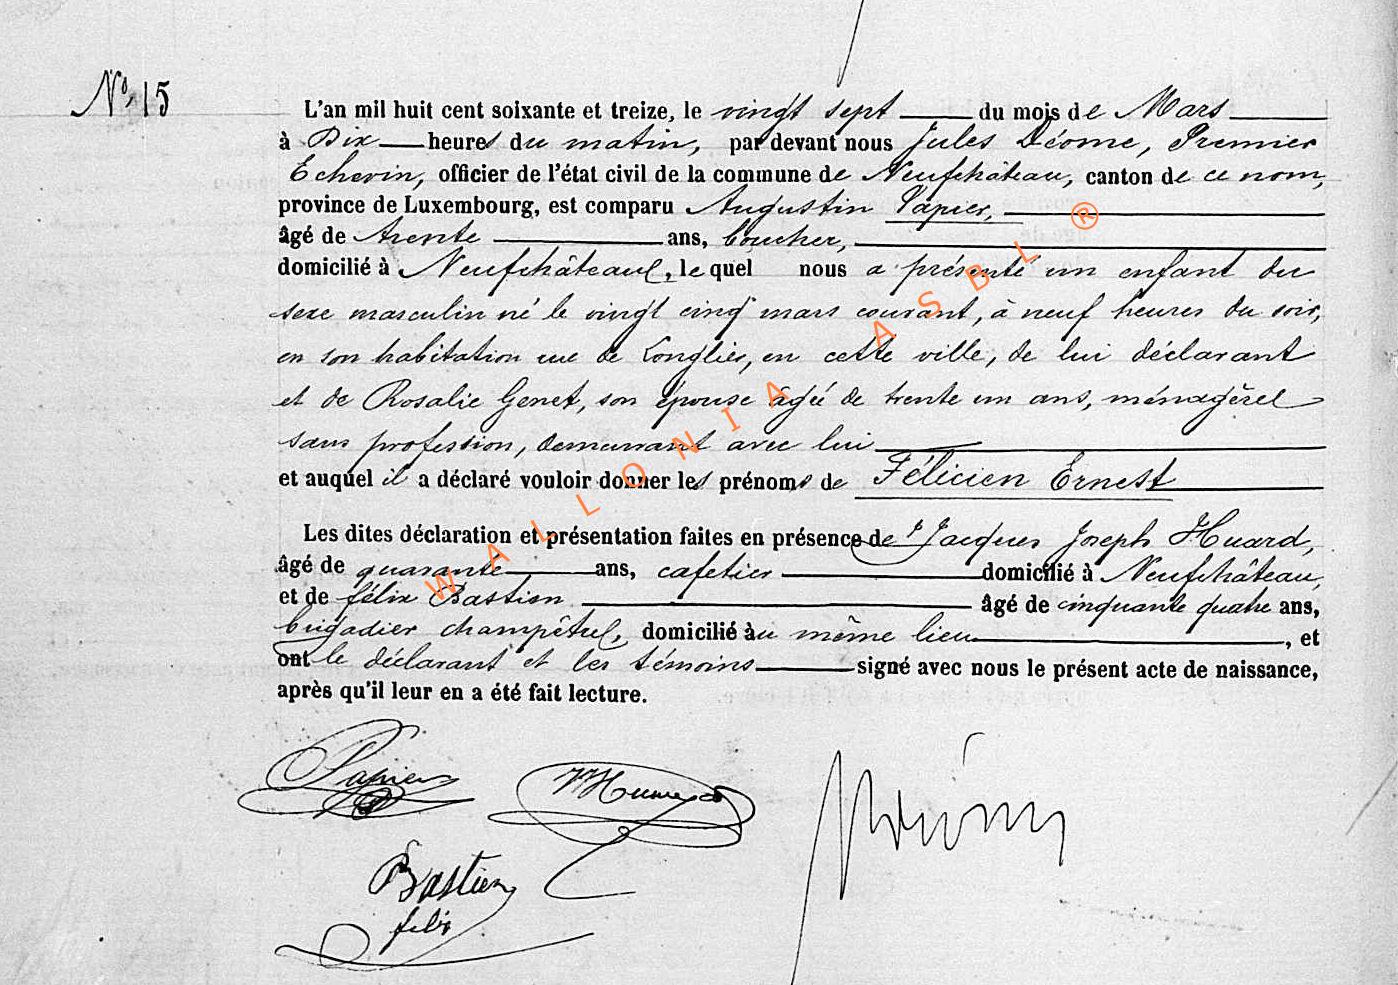 No. 15
L'an mil huit cent soixante et treize, le vingt sept du mois de Mars
à Dix heures du matin, par devant nous Jules Déome, Premier
Echevin, officier de l'état civil de la commune de Neufchâteau, canton de ce nom,
province de Luxembourg, est comparu Augustin Papier,
âgé de trente ans, boucher,
domicilié à Neufchâteau, le quel nous a présenté un enfant du
sexe masculin né le vingt cinq mars courant, à neuf heures du soir,
en son habitation rue de Longlier, en cette ville, de lui déclarant
et de Rosalie Genet, son épouse âgée de trente un ans, ménagère
sans profession, demeurant avec lui
et auquel il a déclaré vouloir donner les prénoms de Félicien Ernest
Les dites déclaration et présentation faites en présence de Jacques Joseph Huard,
âgé de quarante ans, cafetier domicilié à Neufchâteau,
et de félix Bastien âgé de cinquante quatre ans,
brigadier champêtre, domicilié au même lieu, et
ont le déclarant et les témoins signé avec nous le présent acte de naissance,
après qu'il leur en a été fait lecture.
Papier
Bastien
felix
WALLONIA ASBL ®